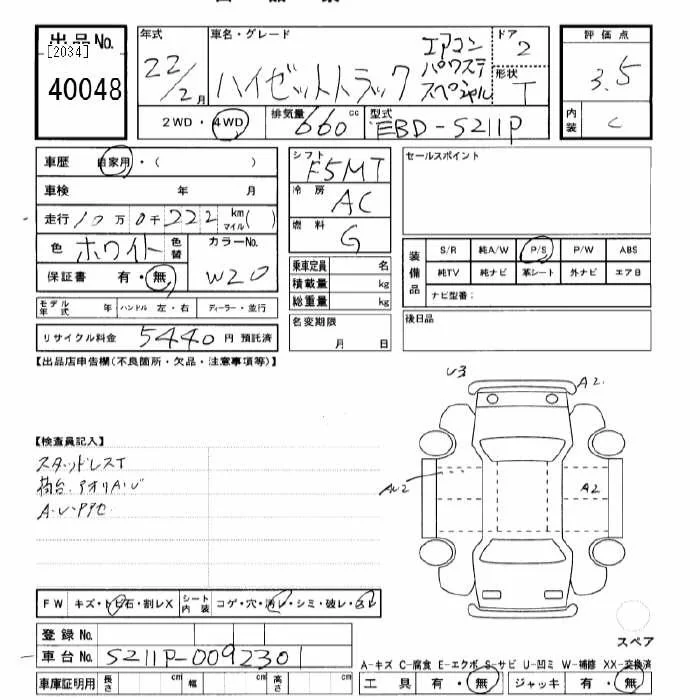 出品No.
[2034]
40048
年式
22/2月
車名・グレード
ハイゼットトラック
エアコン
パワステ
スペシャル
ドア
2
形状
T
評価点
3.5
内装
C
2WD・4WD
排気量
660 cc
型式
EBD-S211P
車歴 自家用・( )
車検 年 月
走行 10万0千222 km マイル( )
色 ホワイト 色替 カラーNo.
W20
保証書 有・無
モデル年式 年 ハンドル 左・右 ディーラー・並行
リサイクル料金 5440円 預託済
シフト
F5MT
冷房
AC
燃料
G
乗車定員 名
積載量 kg
総重量 kg
名変期限
月 日
セールスポイント
装備品
S/R 純A/W P/S P/W ABS
純TV 純ナビ 革シート 外ナビ エアB
ナビ型番:
後日品
【出品店申告欄(不良箇所・欠品・注意事項等)】
【検査員記入】
スタッドレスT
荷台.アオリA・U
A・U・アアセ
U3
A2
A2
FW キズ・トビ石・割レX シート内装 コゲ・穴・汚レ・シミ・破レ・
登録No.
車台No. S211P-0092301
車庫証明用 長さ cm 幅 cm 高さ cm
スペア
A-キズ C-腐食 E-エクボ S-サビ U-凹ミ W-補修 XX-交換済
工具 有・無 ジャッキ 有・無